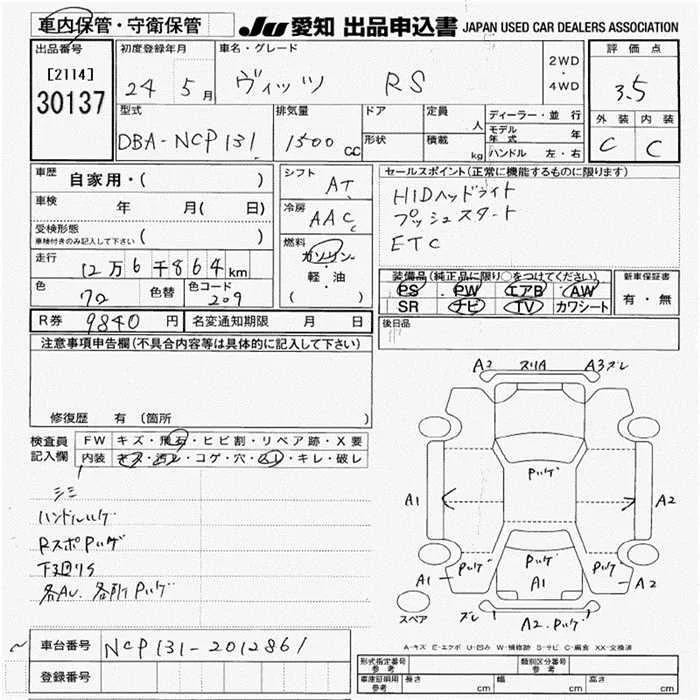 車内保管・守衛保管 JU 愛知 出品申込書 JAPAN USED CAR DEALERS ASSOCIATION
出品番号
[2114]
30137
初度登録年月
24 5 月
車名・グレード
ヴィッツ RS
2WD
・
4WD
評価点
3.5
外装 内装
C C
型式
DBA-NCP131
排気量
1500 cc
ドア
形状
定員 人
積載 kg
ディーラー・並行
モデル年式 年
ハンドル 左・右
車歴 自家用・( )
車検 年 月( 日)
受検形態
車検付きのみ記入して下さい ( )
走行 12万6千864km
色 70 色替 色コード 209
シフト AT
冷房 AAC
燃料 ガソリン
軽・油
( )
セールスポイント(正常に機能するものに限ります)
HIDヘッドライト
プッシュスタート
ETC
装備品(純正品に限り○をつけてください)
PS PW エアB AW
SR ナビ TV カワシート
新車保証書
有・無
後日品
R券 9840 円 名変通知期限 月 日
注意事項申告欄(不具合内容等は具体的に記入して下さい)
修復歴 有(箇所 )
検査員記入欄
FW キズ・飛石・ヒビ割・リペア跡・X要
内装 キズ・汚レ・コゲ・穴・ムレ・キレ・破レ
シミ
ハンドルハゲ
RスポPハゲ
下廻りS
各AU、各所Pハゲ
A2 スリA A3ズレ
Pハゲ
A1 A2
Pハゲ Pハゲ Pハゲ
A1 A1 A2
スペア
ズレ A2.Pハゲ
A-キズ E-エクボ U-凹み W-補修跡 S-サビ C-腐食 XX-交換済
車台番号 NCP131-2012861
登録番号
形式指定番号 参考
類別区分番号 参考
車庫証明用 参考 長さ cm 幅 cm 高さ cm